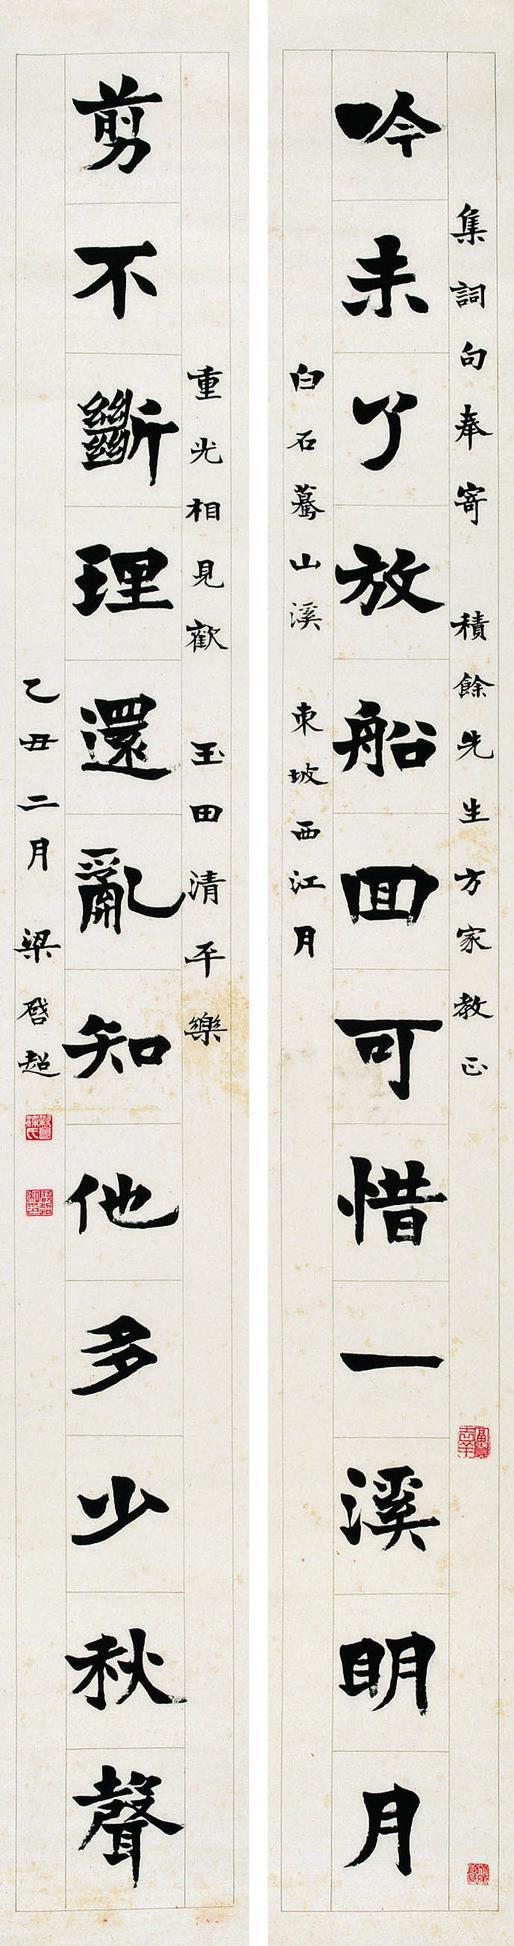 集詞句奉寄 積餘先生方家教正
吟未了放船回可惜一溪明月
白石驀山溪 東坡西江月
重光相見歡 玉田清平樂
剪不斷理還亂知他多少秋聲
乙丑二月 梁啓超